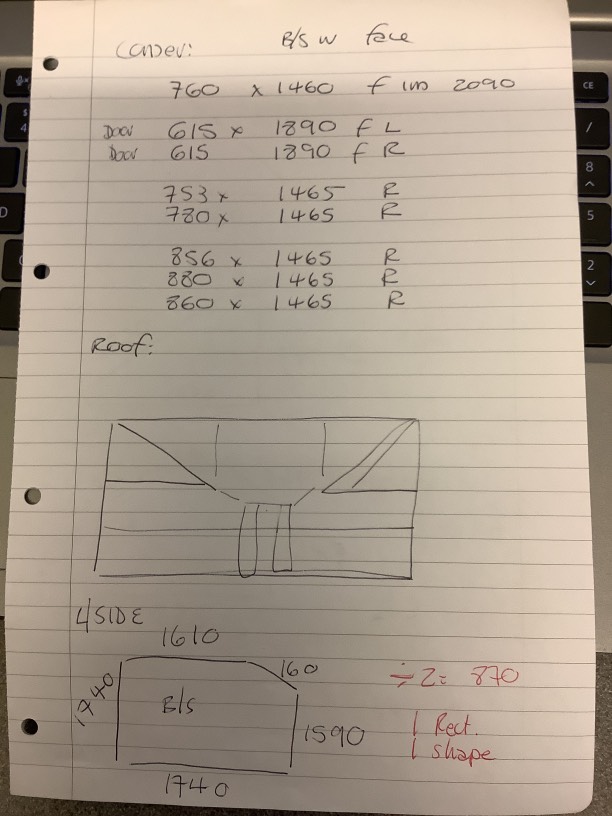 Conserv:
B/S W face
760 x 1460 f Im 2090
Door 615 x 1890 f L
Door 615 1890 f R
753 x 1465 R
780 x 1465 R
856 x 1465 R
880 x 1465 R
860 x 1465 R
Roof:
4 SIDE
1610
160
1740
B/S
1590
1740
÷ 2 = 870
1 Rect.
1 shape
CE
/
8
5
2
4
D